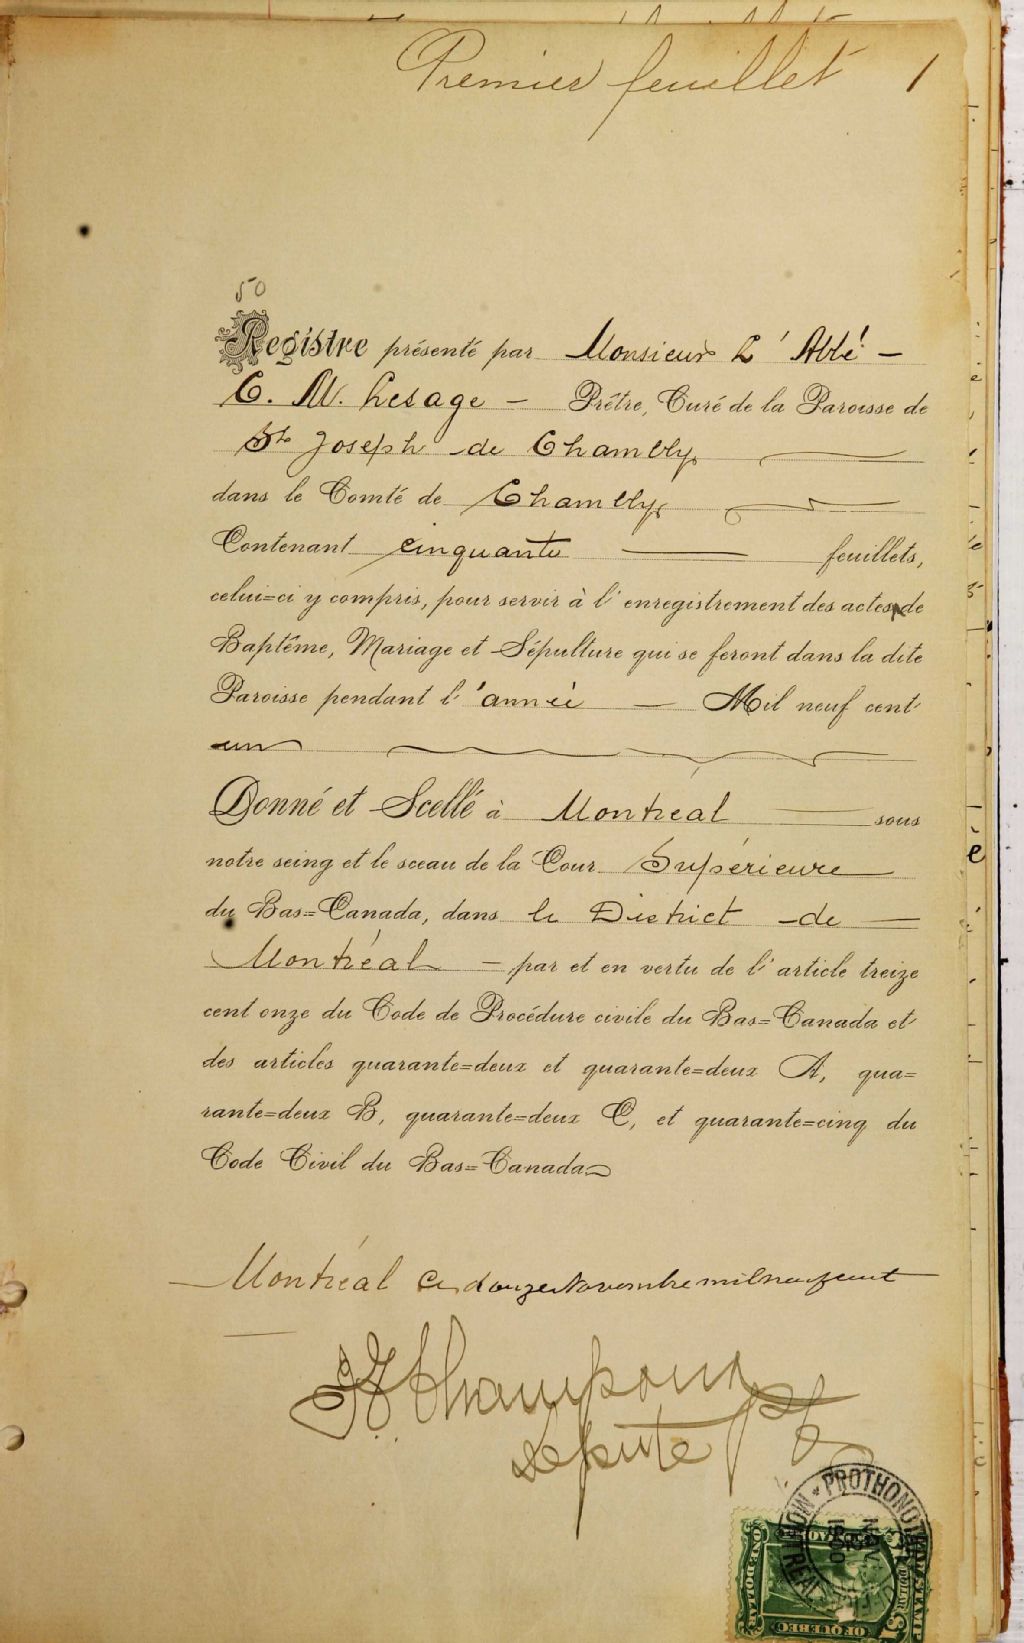 Premier feuillet 1
50
Registre présenté par Monsieur L'Abbé —
C. M. Lesage — Prêtre, Curé de la Paroisse de
St Joseph de Chambly
dans le Comté de Chambly
Contenant cinquante feuillets,
celui=ci y compris, pour servir à l'enregistrement des actes de
Baptême, Mariage et Sépulture qui se feront dans la dite
Paroisse pendant l'année — Mil neuf cent
un
Donné et Scellé à Montréal sous
notre seing et le sceau de la Cour Supérieure
du Bas=Canada, dans le District de
Montréal — par et en vertu de l'article treize
cent onze du Code de Procédure civile du Bas=Canada et
des articles quarante=deux et quarante=deux A, qua=
rante=deux B, quarante=deux C, et quarante=cinq du
Code Civil du Bas=Canada
Montréal ce douze Novembre mil neuf cent
Champoux
Député
PROTHONOT
MONTREAL
NOV
1900
ONE DOLLAR
QUEBEC